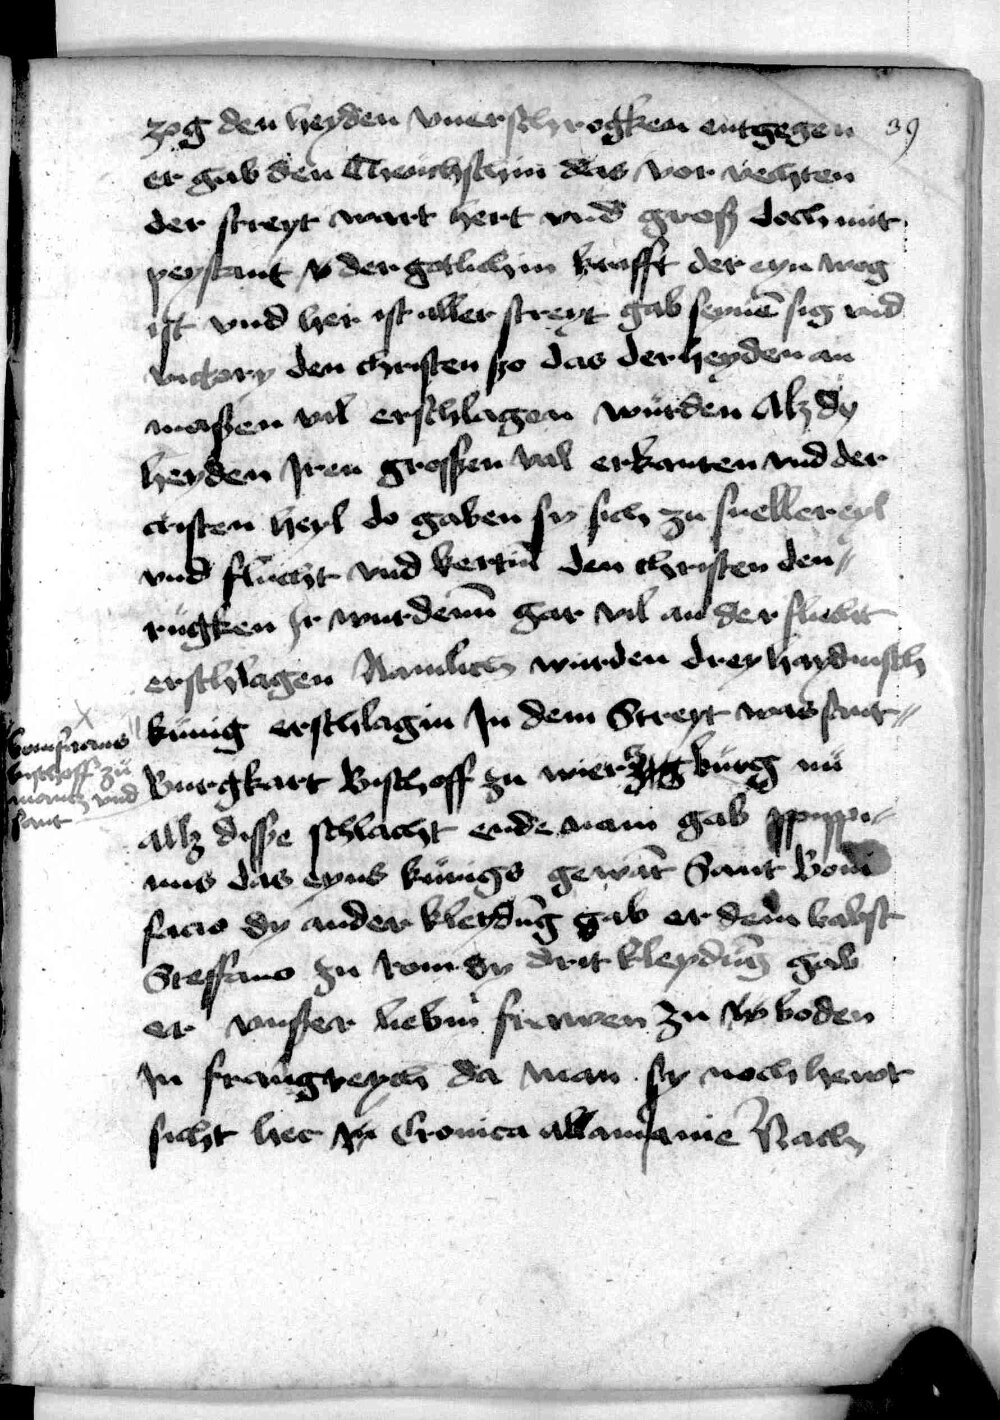 39
zog den heyden vnerschrogken entgegen
er gab den Theuchschin das vor vechten
der streyt wart hert vnd groß doch mit
peystant der gotlichin krafft der eyn weg
ist vnd her ist aller streyt gab seynē sig vnd
victory den christen ßo das der heyden an
maßen vil erschlagen würden Alz dy
heyden Iren grossen val erkanten vnd der
cristen heyl do gaben sy sich zu sneller eyl
vnd flucht vnd kertin den christen den
rügken Ir wurdenn gar vil an der flucht
erschlagen Namlich würden drey haydnisch
künig erschlagin In dem Streyt was sant
Burgkart Bischoff zu wierzburg nü
bonifacius
bischoff zü
mentz vnd
sant
Allz diße schlacht ende nam gab pypi
nus das eyns künigs gewāt Sant Boni
facio dy ander kleydūg gab er dem babst
Steffano zu rom dy drit kleydūg gab
er vnßer liebin frawen zu boden
In frangreych da man sy noch hewt
sicht hec Cronica allamanie Nach